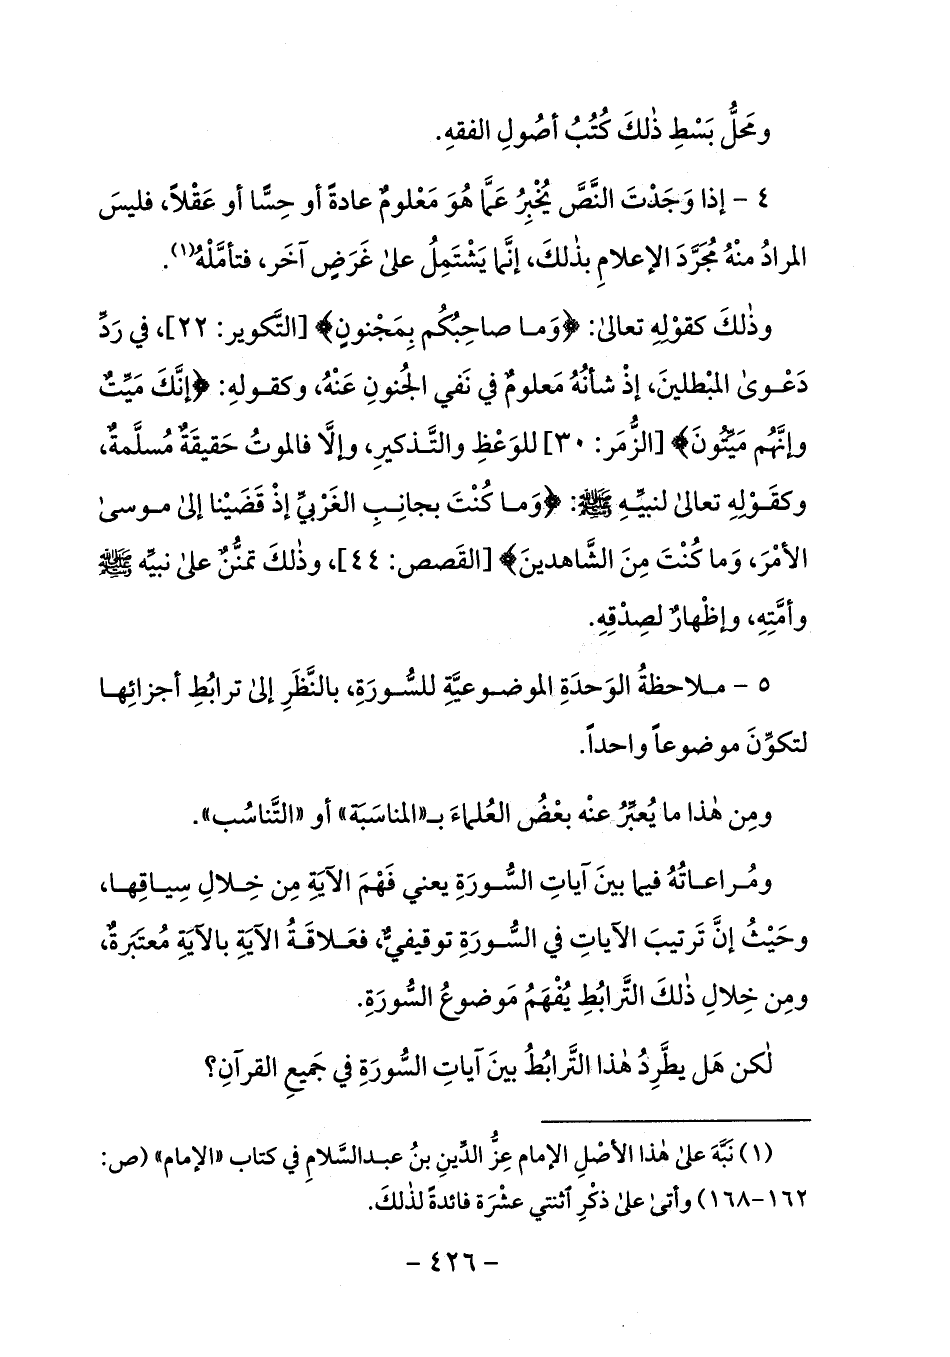 ومَحلُّ بَسْطِ ذٰلكَ كُتُبُ أصُولِ الفقهِ.
٤ - إذا وَجَدْتَ النَّصَّ يُخْبِرُ عَمَّا هُوَ مَعْلومٌ عادةً أو حِسًّا أو عَقْلاً، فليسَ
المرادُ منْهُ مُجَرَّدَ الإعلامِ بذٰلكَ، إنَّما يَشْتَمِلُ علىٰ غَرَضٍ آخَر، فتأمَّلْهُ(١).
وذٰلكَ كقوْلِهِ تعالىٰ: ﴿وَما صاحِبُكُم بِمَجْنونٍ﴾ [التَّكوير: ٢٢]، في رَدِّ
دَعْوىٰ المبْطلينَ، إذْ شأنُهُ مَعلومٌ في نَفي الجُنونِ عَنْهُ، وكقولهِ: ﴿إنَّكَ مَيِّتٌ
وإنَّهُم مَيِّتُونَ﴾ [الزُّمَر: ٣٠] للوَعْظِ والتَّذكيرِ، وإلَّا فالموتُ حَقيقَةٌ مُسلَّمةٌ،
وكقَوْلِهِ تعالىٰ لنبيِّهِ ﷺ: ﴿وَما كُنْتَ بجانِبِ الغَرْبيِّ إذْ قَضَيْنا إلىٰ موسىٰ
الأمْرَ، وَما كُنْتَ مِنَ الشَّاهدينَ﴾ [القَصص: ٤٤]، وذٰلكَ تمنُّنٌ علىٰ نبيِّه ﷺ
وأمَّتِهِ، وإظْهارٌ لصِدْقِهِ.
٥ - ملاحظةُ الوَحدَةِ الموضوعيَّةِ للسُّورَةِ، بالنَّظَرِ إلىٰ ترابُطِ أجزائِها
لتكوِّنَ موضوعاً واحداً.
ومِن هٰذا ما يُعبِّرُ عنْه بعْضُ العُلماءَ بـ«المناسَبَة» أو «التَّناسُب».
ومُراعاتُهُ فيما بينَ آياتِ السُّورَةِ يعني فَهْمَ الآيَةِ مِن خِلالِ سِياقِها،
وحَيْثُ إنَّ تَرتيبَ الآياتِ في السُّورَةِ توقيفيٌّ، فعَلاقَةُ الآيَةِ بالآيَةِ مُعتَبَرةٌ،
ومِن خِلالِ ذٰلكَ التَّرابُطِ يُفْهَمُ مَوضوعُ السُّورَةِ.
لٰكن هَل يطَّرِدُ هٰذا التَّرابُطُ بينَ آياتِ السُّورَةِ في جَميعِ القرآنِ؟
(١) نَبَّهَ علىٰ هٰذا الأصْلِ الإمام عِزُّ الدِّينِ بنُ عبدالسَّلامِ في كتاب «الإمام» (ص:
١٦٢-١٦٨) وأتىٰ علىٰ ذكْرِ ٱثنتي عشْرَة فائدةً لذٰلكَ.
- ٤٢٦ -